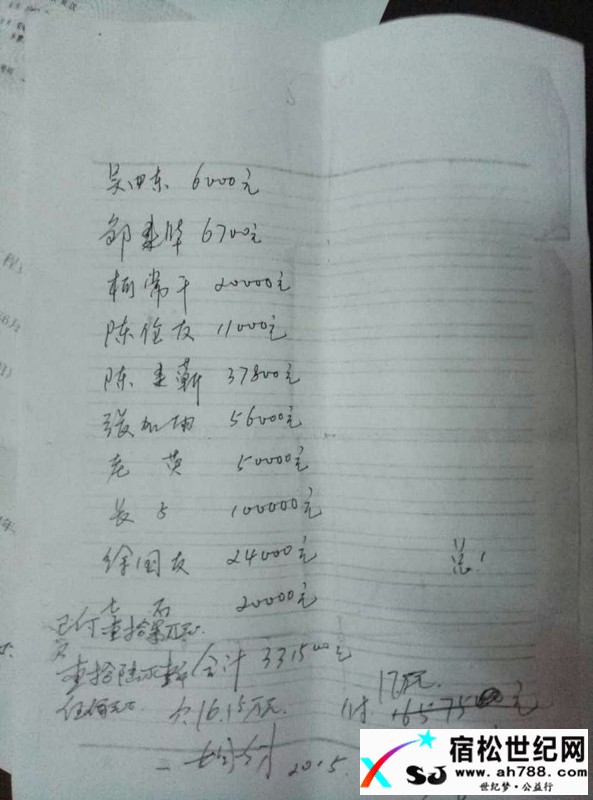 吴田东 6000元
邹来华 6700元
柏常干 20000元
陈俭友 11000元
陈来新 37800元
张加田 56000元
老黄 50000元
长子 100000元
徐国友 24000元
总!
七石 20000元
已付壹拾柒万元
合计 331500元
壹拾陆万壹仟
伍佰元
欠16.15万元
付 17万元
165750元
2015.
宿松世纪网
XSJ
www.ah788.com
世纪梦·公益行